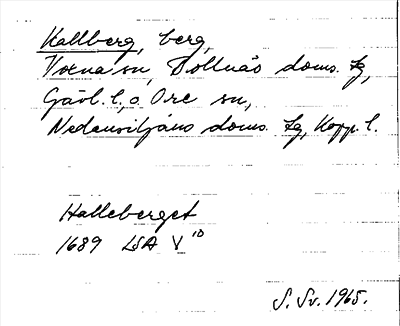 Kallberg, berg,
Voxna sn, Bollnäs doms. lg,
Gävl. l., o. Ore sn,
Nedansiljans doms. lg, Kopp. l.
Halleberget
1689 LSA V 10
S. Sv. 1965.